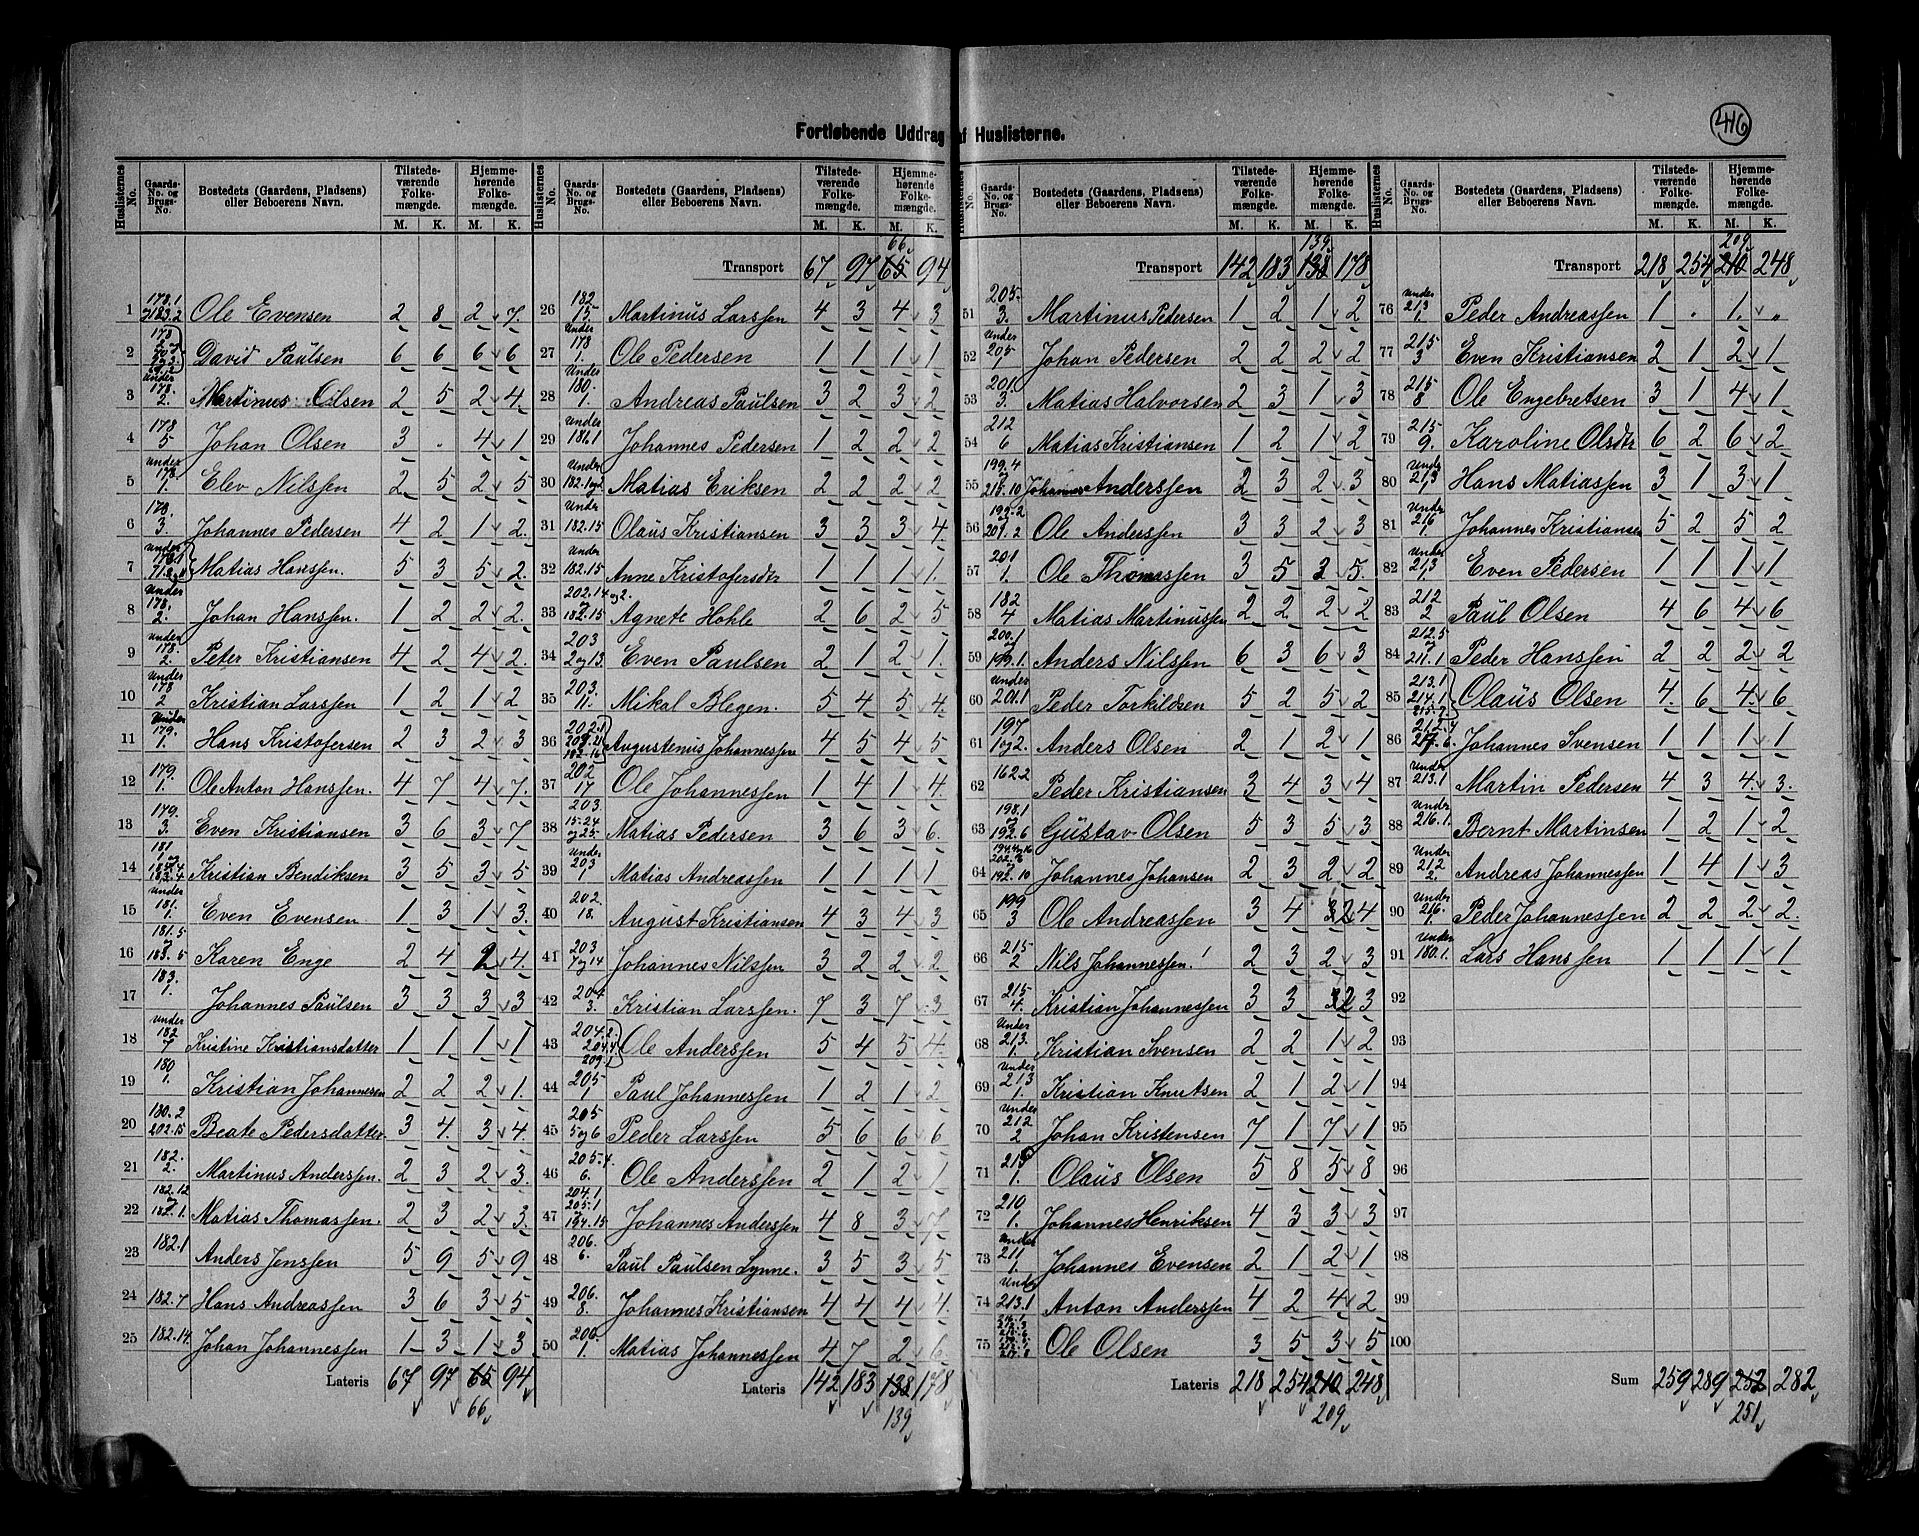 416
Fortløbende Uddrag af Huslisterne.
Huslisternes No. Gaards-No. og Brugs-No. Bostedets (Gaardens, Pladsens) eller Beboerens Navn. Tilstedeværende Folkemængde. M. K. Hjemmehørende Folkemængde. M. K.
1 178.1 183.2 Ole Evensen 2 8 2 7
2 David Paulsen 6 6 6 6
3 Under 178. 2. Martinus Olsen 2 5 2 4
4 178 5 Johan Olsen 3 . 4 1
5 Under 178 1. Elev Nilssen 2 5 2 5
6 178. 3. Johannes Pedersen 4 2 1 2
7 Under 178.1 Matias Hanssen. 5 3 5 2
8 Under 178. 2. Johan Hanssen. 1 2 2 2
9 Under 178. 2. Peter Kristiansen 4 2 4 2
10 Under 178 2 Kristian Larssen 1 2 1 2
11 Under 179. 1. Hans Kristofersen 2 3 2 3
12 179. 1. Ole Anton Hanssen. 4 7 4 7
13 179. 3. Even Kristiansen 3 6 3 7
14 181 Kristian Bendiksen 3 5 3 5
15 Under 181. 1. Even Evensen 1 3 1 3
16 181.5 183.5 Karen Enge 2 4 2 4
17 183. 1. Johannes Paulsen 3 3 3 3
18 Under 182 7 Kristine Kristiansdatter 1 1 1 1
19 180 1. Kristian Johannesen 2 2 2 1
20 180.2 202.15 Beate Pedersdatter 3 4 3 4
21 182. 2. Martinus Anderssen. 2 3 2 3
22 182.12 182.1. Matias Thomassen. 2 3 2 3
23 182.1 Anders Jenssen 5 9 5 9
24 182.7 Hans Andreassen 3 6 3 5
25 182.14. Johan Johannessen 1 3 1 3
Lateris 67 97 65 94
66
Huslisternes No. Gaards-No. og Brugs-No. Bostedets (Gaardens, Pladsens) eller Beboerens Navn. Tilstedeværende Folkemængde. M. K. Hjemmehørende Folkemængde. M. K.
66
Transport 67 97 65 94
26 182 15 Martinus Larssen 4 3 4 3
27 Under 178 1. Ole Pedersen 1 1 1 1
28 Under 180. 1. Andreas Paulsen 3 2 3 2
29 Under 181.1 Johannes Pedersen 1 2 2 2
30 Under 182.1og2 Matias Eriksen 2 2 2 2
31 Under 182.15 Olaus Kristiansen 3 3 3 4
32 Under 182.15 Anne Kristofersdtr 1 1 1 1
33 202.14 og2. 182.15 Agnete Hohle 2 6 2 5
34 203 2og13. Even Paulsen 2 1 2 1
35 203. 11. Mikal Blegen. 5 4 5 4
36 Augustenus Johannessen 4 5 4 5
37 202 17 Ole Johannessen 1 4 1 4
38 203 15-24 og25. Matias Pedersen 3 6 3 6
39 Under 203 1 Matias Andreassen 1 1 1 1
40 202. 18. August Kristiansen 4 3 4 3
41 203 7og14 Johannes Nilssen 3 2 2 2
42 204 3. Kristian Larssen. 7 3 7 3
43 204.2. 204.4 209.1 Ole Anderssen 5 4 5 4
44 205 1 Paul Johannessen 1 2 1 2
45 205 5og6 Peder Larssen 5 6 6 6
46 205.4. 6. Ole Anderssen 2 1 2 1
47 204.1 205.1 194.15 Johannes Anderssen 4 8 3 7
48 206. 6. Paul Paulsen Lynne. 3 5 3 5
49 206. 8. Johannes Kristiansen 4 4 4 4
50 206. 1. Matias Johannessen 4 7 2 6
Lateris 142 183 138 178
139
Huslisternes No. Gaards-No. og Brugs-No. Bostedets (Gaardens, Pladsens) eller Beboerens Navn. Tilstedeværende Folkemængde. M. K. Hjemmehørende Folkemængde. M. K.
139
Transport 142 183 138 178
51 205. 3. Martinus Pedersen 1 2 1 2
52 Under 205 1 Johan Pedersen 2 2 2 2
53 201. 3. Matias Halvorsen 2 3 1 3
54 212 6 Matias Kristiansen 1 2 1 2
55 199.4 216.10 Johannes Anderssen 2 3 2 3
56 199.2 209.2 Ole Anderssen 3 3 2 3
57 201 1. Ole Thomassen 3 5 3 5
58 182 4 Matias Martinussen 2 2 2 2
59 200.1 199.1 Anders Nilssen 6 3 6 3
60 Under 201.1 Peder Torkildsen 5 2 5 2
61 197 1og2. Anders Olsen 2 1 2 1
62 162 2 Peder Kristiansen 3 4 3 4
63 198.1 192.6 Gustav Olsen 5 3 5 3
64 192.10 Johannes Johansen 2 3 2 2
65 199 3 Ole Andreassen 3 4 2 4
66 215 2 Nils Johannessen. 2 3 2 3
67 215 4. Kristian Johannessen 3 3 2 3
68 Under 213. 1. Kristian Svensen 2 2 1 2
69 Under 213 1. Kristian Knutsen 2 1 2 1
70 Under 212 2 Johan Kristensen 7 1 7 1
71 215 1. Olaus Olsen 5 8 5 8
72 210 1. Johannes Henriksen 4 3 3 3
73 Under 211 1. Johannes Evensen 2 1 2 1
74 Under 213.1 Anton Anderssen 4 2 4 2
75 Ole Olsen 3 5 3 5
Lateris 218 254 210 248
209
Huslisternes No. Gaards-No. og Brugs-No. Bostedets (Gaardens, Pladsens) eller Beboerens Navn. Tilstedeværende Folkemængde. M. K. Hjemmehørende Folkemængde. M. K.
209
Transport 218 254 210 248
76 Under 213 1 Peder Andreassen 1 . 1 "
77 215 3 Even Kristiansen 2 1 2 1
78 215 8 Ole Engebretsen 3 1 4 1
79 215 9. Karoline Olsdtr 6 2 6 2
80 Under 213 1 Hans Matiassen 3 1 3 1
81 Under 216 1. Johannes Kristiansen 5 2 5 2
82 Under 213 1. Even Pedersen 1 1 1 1
83 212 2 Paul Olsen 4 6 4 6
84 212.5 211.1 Peder Hanssen 2 2 2 2
85 213.1 214.1 215.7 Olaus Olsen 4 6 4 6
86 217.6. Johannes Svensen 1 1 1 1
87 Under 213.1 Martin Pedersen 4 3 4 3
88 Under 216.1. Bernt Martinsen 1 2 1 2
89 Under 212 2. Andreas Johannessen 1 4 1 3
90 Under 216. 1. Peder Johannessen 2 2 2 2
91 Under 180.1. Lars Hanssen 1 1 1 1
92
93
94
95
96
97
98
99
100
Sum 259 289 252 282
251